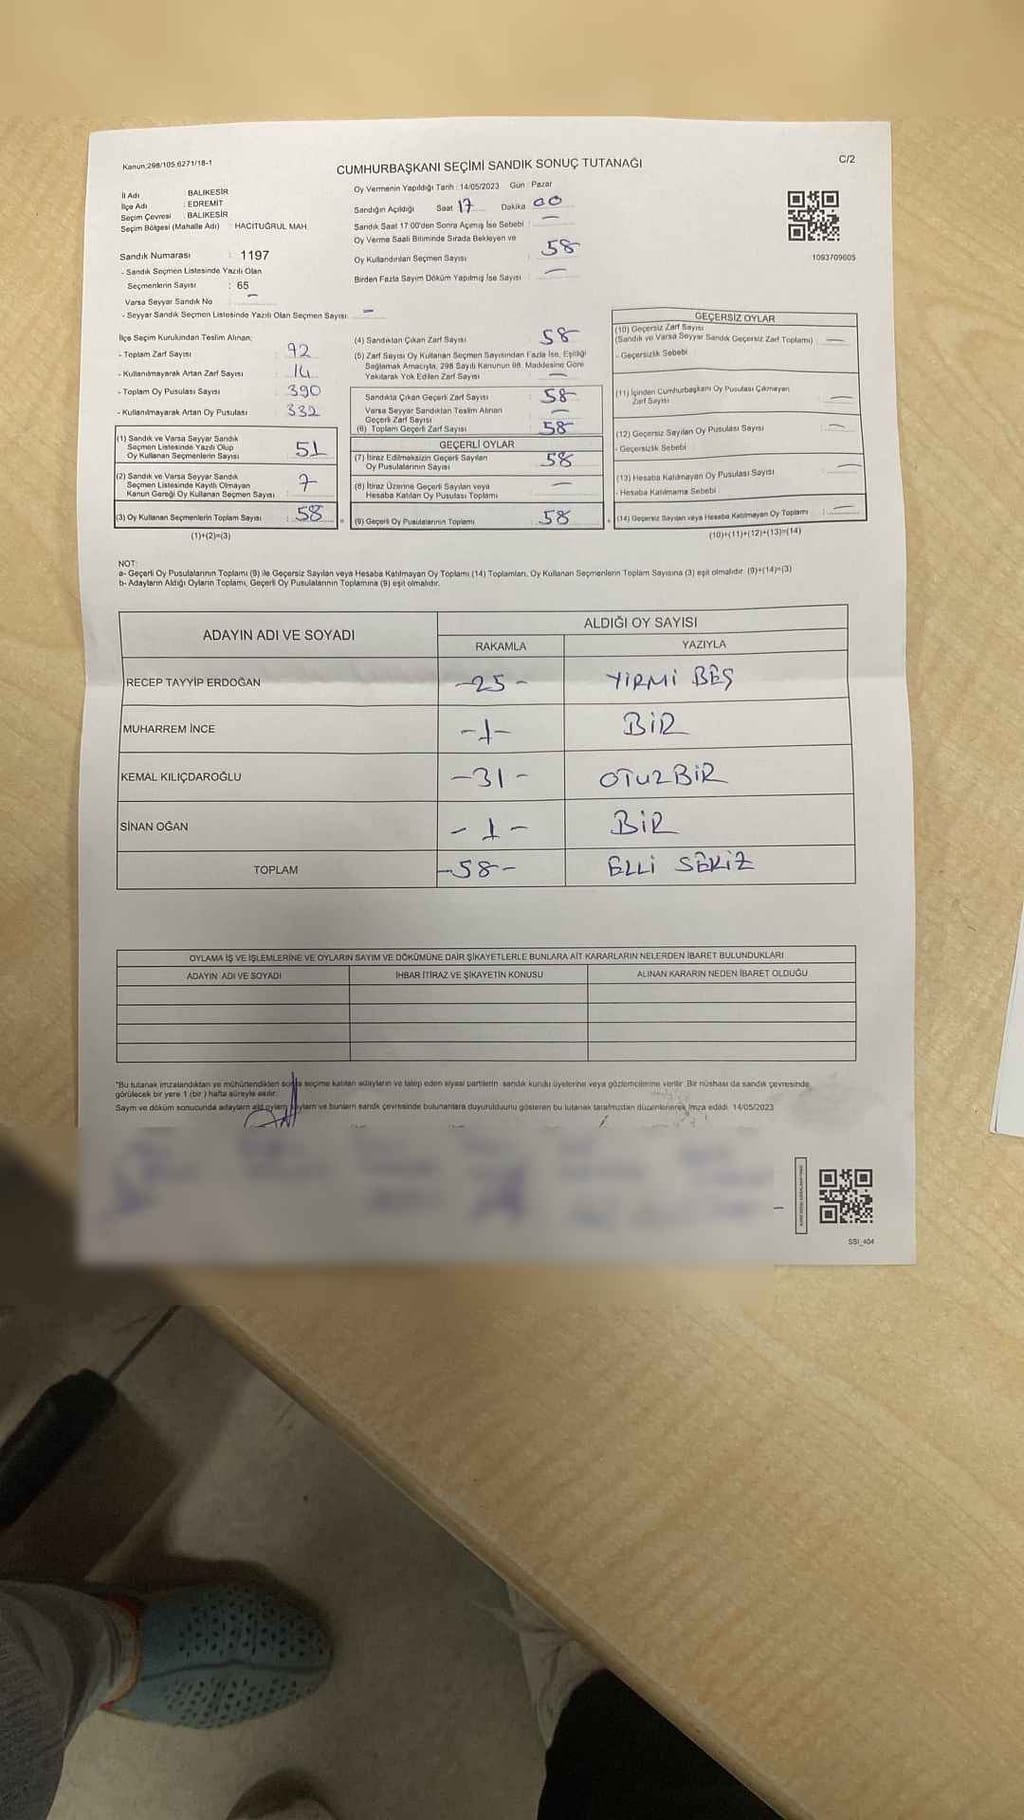 Kanun;298/105.6271/18-1
CUMHURBAŞKANI SEÇİMİ SANDIK SONUÇ TUTANAĞI
C/2
İl Adı BALIKESİR
İlçe Adı : EDREMİT
Seçim Çevresi : BALIKESİR
Seçim Bölgesi (Mahalle Adı) : HACITUĞRUL MAH.
Sandık Numarası : 1197
- Sandık Seçmen Listesinde Yazılı Olan
Seçmenlerin Sayısı : 65
Varsa Seyyar Sandık No –
- Seyyar Sandık Seçmen Listesinde Yazılı Olan Seçmen Sayısı –
Oy Vermenin Yapıldığı Tarih : 14/05/2023 Gün : Pazar
Sandığın Açıldığı Saat 17 Dakika 00
Sandık Saat 17:00'den Sonra Açımış İse Sebebi –
Oy Verme Saati Bitiminde Sırada Bekleyen ve
Oy Kullandırılan Seçmen Sayısı 58
Birden Fazla Sayım Döküm Yapılmış İse Sayısı –
1093709605
İlçe Seçim Kurulundan Teslim Alınan;
- Toplam Zarf Sayısı 92
- Kullanılmayarak Artan Zarf Sayısı 14
- Toplam Oy Pusulası Sayısı 390
- Kullanılmayarak Artan Oy Pusulası 332
(1) Sandık ve Varsa Seyyar Sandık
Seçmen Listesinde Yazılı Olup
Oy Kullanan Seçmenlerin Sayısı 51
(2) Sandık ve Varsa Seyyar Sandık
Seçmen Listesinde Kayıtlı Olmayan
Kanun Gereği Oy Kullanan Seçmen Sayısı 7
(3) Oy Kullanan Seçmenlerin Toplam Sayısı 58
(1)+(2)=(3)
(4) Sandıktan Çıkan Zarf Sayısı 58
(5) Zarf Sayısı Oy Kullanan Seçmen Sayısından Fazla İse, Eşitliği
Sağlamak Amacıyla, 298 Sayılı Kanunun 98. Maddesine Göre
Yakılarak Yok Edilen Zarf Sayısı –
Sandıkta Çıkan Geçerli Zarf Sayısı 58
Varsa Seyyar Sandıktan Teslim Alınan
Geçerli Zarf Sayısı –
(6) Toplam Geçerli Zarf Sayısı 58
GEÇERLİ OYLAR
(7) İtiraz Edilmeksizin Geçerli Sayılan
Oy Pusulalarının Sayısı 58
(8) İtiraz Üzerine Geçerli Sayılan veya
Hesaba Katılan Oy Pusulası Toplamı –
(9) Geçerli Oy Pusulalarının Toplamı 58
GEÇERSİZ OYLAR
(10) Geçersiz Zarf Sayısı
(Sandık ve Varsa Seyyar Sandık Geçersiz Zarf Toplamı) –
- Geçersizlik Sebebi
(11) İçinden Cumhurbaşkanı Oy Pusulası Çıkmayan
Zarf Sayısı –
(12) Geçersiz Sayılan Oy Pusulası Sayısı –
- Geçersizlik Sebebi
(13) Hesaba Katılmayan Oy Pusulası Sayısı –
- Hesaba Katılmama Sebebi
(14) Geçersiz Sayılan veya Hesaba Katılmayan Oy Toplamı –
(10)+(11)+(12)+(13)=(14)
NOT:
a- Geçerli Oy Pusulalarının Toplamı (9) ile Geçersiz Sayılan veya Hesaba Katılmayan Oy Toplamı (14) Toplamları, Oy Kullanan Seçmenlerin Toplam Sayısına (3) eşit olmalıdır. (9)+(14)=(3)
b- Adayların Aldığı Oyların Toplamı, Geçerli Oy Pusulalarının Toplamına (9) eşit olmalıdır.
ADAYIN ADI VE SOYADI
ALDIĞI OY SAYISI
RAKAMLA YAZIYLA
RECEP TAYYİP ERDOĞAN -25- YİRMİ BEŞ
MUHARREM İNCE -1- BİR
KEMAL KILIÇDAROĞLU -31- OTUZBİR
SİNAN OĞAN -1- BİR
TOPLAM -58- ELLİ SEKİZ
OYLAMA İŞ VE İŞLEMLERİNE VE OYLARIN SAYIM VE DÖKÜMÜNE DAİR ŞİKAYETLERLE BUNLARA AİT KARARLARIN NELERDEN İBARET BULUNDUKLARI
ADAYIN ADI VE SOYADI İHBAR İTİRAZ VE ŞİKAYETİN KONUSU ALINAN KARARIN NEDEN İBARET OLDUĞU
"Bu tutanak imzalandıktan ve mühürlendikten sonra seçime katılan adayların ve talep eden siyasi partilerin sandık kurulu üyelerine veya gözlemcilerine verilir. Bir nüshası da sandık çevresinde
görülecek bir yere 1 (bir) hafta süreyle asılır.
Sayım ve döküm sonucunda adayların ve bunların sandık çevresinde bulunanlara duyurulduğunu gösteren bu tutanak tarafımızdan düzenlenerek imza edildi. 14/05/2023
SSI_404